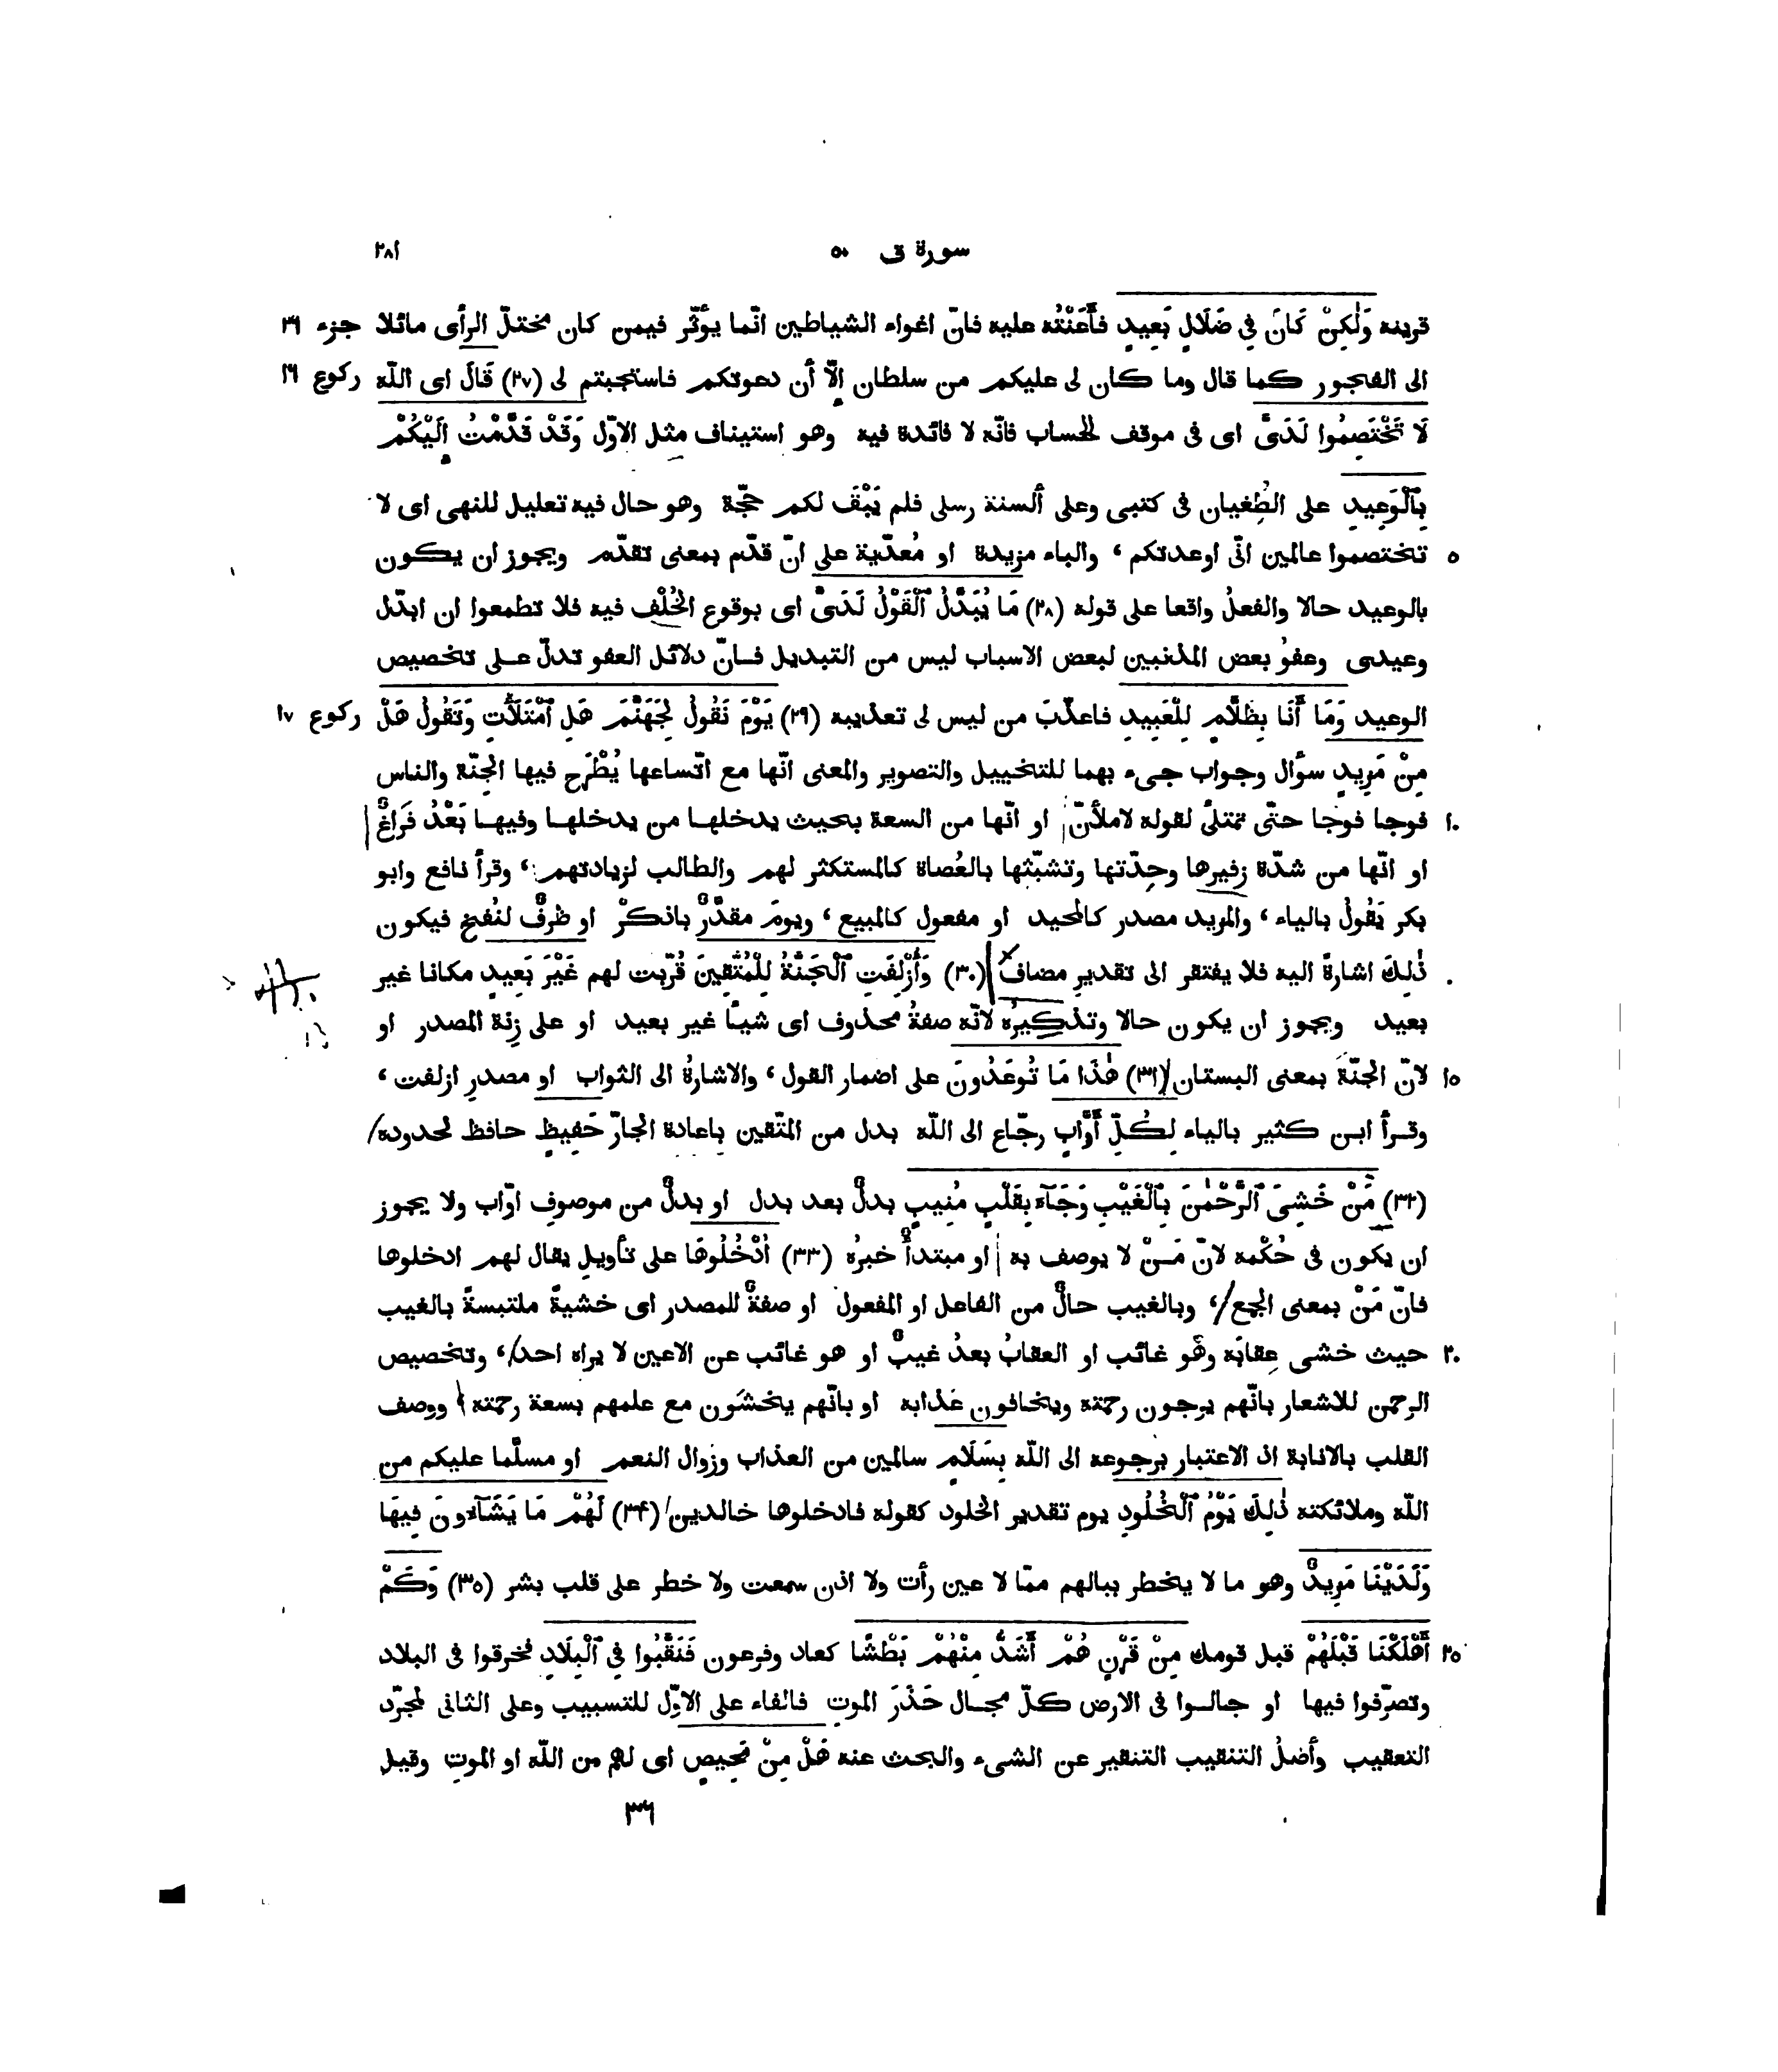 سورة ق ٥٠ ٢٨١
قرينه وَلٰكِنْ كَانَ فِي ضَلَالٍ بَعِيدٍ فأَعَنْتُه عليه فانّ اغواء الشياطين انّما يؤثّر فيمن كان مختلّ الرأى مائلا جزء ٢٦
الى الفجور كما قال وما كان لى عليكم من سلطان إلّا أن دعوتكم فاستجبتم لى (٢٧) قَالَ اى اللّه ركوع ١٦
لَا تَخْتَصِمُوا لَدَىَّ اى فى موقف الحساب فانّه لا فائدة فيه وهو استيناف مثل الاوّل وَقَدْ قَدَّمْتُ إلَيْكُمْ
بِٱلْوَعِيدِ على الطُغيان فى كتبى وعلى ألسنة رسلى فلم يَبْقَ لكم حجّة وهو حال فيه تعليل للنهى اى لا
٥ تختصموا عالمين انّى اوعدتكم ، والباء مزيدة او مُعدّية على انّ قدّم بمعنى تقدّم ويجوز ان يكون
بالوعيد حالا والفعلُ واقعا على قوله (٢٨) مَا يُبَدَّلُ ٱلْقَوْلُ لَدَىَّ اى بوقوع الخُلْف فيه فلا تطمعوا ان ابدّل
وعيدى وعفوُ بعض المذنبين لبعض الاسباب ليس من التبديل فانّ دلائل العفو تدلّ على تخصيص
الوعيد وَمَا أَنَا بِظَلَّامٍ لِلْعَبِيدِ فاعذّبَ من ليس لى تعذيبه (٢٩) يَوْمَ نَقُولُ لِجَهَنَّمَ هَلِ ٱمْتَلَأْتِ وَتَقُولُ هَلْ ركوع ١٧
مِنْ مَزِيدٍ سؤال وجواب جىء بهما للتخييل والتصوير والمعنى انّها مع اتّساعها يُطْرَح فيها الجِنّة والناس
١٠ فوجا فوجا حتّى تمتلئ لقوله لاملأنّ او انّها من السعة بحيث يدخلها من يدخلها وفيها بَعْدُ فَرَاغٌ
او انّها من شدّة زفيرها وحِدّتها وتشبّثها بالعُصاة كالمستكثر لهم والطالب لزيادتهم ، وقرأ نافع وابو
بكر يَقُولُ بالياء ، والمزيد مصدر كالمحيد او مفعول كالمبيع ، ويومَ مقدَّرٌ باذكرْ او ظرفٌ لنُفخ فيكون
ذٰلِكَ اشارةً اليه فلا يفتقر الى تقديرِ مضاف (٣٠) وَأُزْلِفَتِ ٱلْجَنَّةُ لِلْمُتَّقِينَ قُرّبت لهم غَيْرَ بَعِيدٍ مكانا غير
بعيد ويجوز ان يكون حالا وتذكيرُه لانّه صفةُ محذوف اى شيئًا غير بعيد او على زِنة المصدر او
١٥ لانّ الجنّة بمعنى البستان (٣١) هٰذَا مَا تُوعَدُونَ على اضمار القول ، والاشارةُ الى الثواب او مصدرِ ازلفت ،
وقرأ ابن كثير بالياء لِكُلِّ أَوَّابٍ رجّاع الى اللّه بدل من المتّقين باعادة الجارّ حَفِيظٍ حافظ لحدوده
(٣٢) مَنْ خَشِىَ ٱلرَّحْمٰنَ بِٱلْغَيْبِ وَجَآءَ بِقَلْبٍ مُنِيبٍ بدلٌ بعد بدل او بدلٌ من موصوفِ اوّاب ولا يجوز
ان يكون فى حُكْمه لانّ مَنْ لا يوصف به او مبتدأٌ خبرُه (٣٣) اُدْخُلُوهَا على تأويلِ يقال لهم ادخلوها
فانّ مَنْ بمعنى الجمع ، وبالغيب حالٌ من الفاعل او المفعول او صفةٌ للمصدر اى خشيةً ملتبسةً بالغيب
٢٠ حيث خشى عِقابَه وهُو غائب او العقابُ بعدُ غيبٌ او هو غائب عن الاعين لا يراه احد ، وتخصيص
الرحمن للاشعار بانّهم يرجون رحمته ويخافون عذابه او بانّهم يخشَون مع علمهم بسعة رحمته ووصف
القلب بالانابة اذ الاعتبار برجوعه الى اللّه بِسَلَامٍ سالمين من العذاب وزوال النعم او مسلَّما عليكم من
اللّه وملائكته ذٰلِكَ يَوْمُ ٱلْخُلُودِ يوم تقدير الخلود كقوله فادخلوها خالدين (٣٤) لَهُمْ مَا يَشَآءُونَ فِيهَا
وَلَدَيْنَا مَزِيدٌ وهو ما لا يخطر ببالهم ممّا لا عين رأت ولا اذن سمعت ولا خطر على قلب بشر (٣٥) وَكَمْ
٢٥ أَهْلَكْنَا قَبْلَهُمْ قبل قومك مِنْ قَرْنٍ هُمْ أَشَدُّ مِنْهُمْ بَطْشًا كعاد وفرعون فَنَقَّبُوا فِي ٱلْبِلَادِ فخرقوا فى البلاد
وتصرّفوا فيها او جالوا فى الارض كلّ مجال حَذَرَ الموتِ فالفاء على الاوّل للتسبيب وعلى الثانى لمجرّد
التعقيب وأصلُ التنقيب التنقير عن الشىء والبحث عنه هَلْ مِنْ مَحِيصٍ اى لهم من اللّه او الموتِ وقيل
٣٦